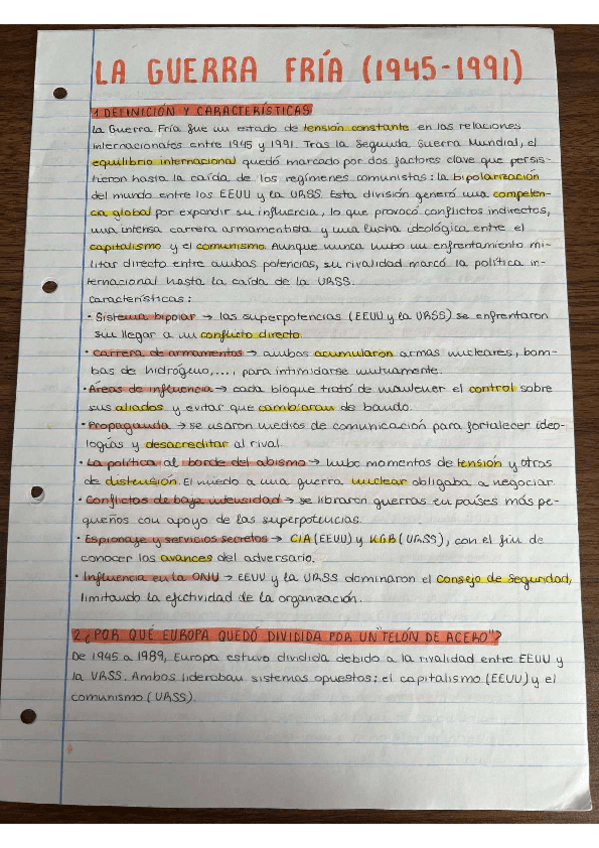 LA GUERRA FRÍA (1945-1991)
1 DEFINICIÓN Y CARACTERÍSTICAS
La Guerra Fría fue un estado de tensión constante en las relaciones
internacionales entre 1945 y 1991. Tras la Segunda Guerra Mundial, el
equilibrio internacional quedó marcado por dos factores clave que persis-
tieron hasta la caída de los regímenes comunistas: la bipolarización
del mundo entre los EEUU y la URSS. Esta división generó una competen-
cia global por expandir su influencia, lo que provocó conflictos indirectos,
una intensa carrera armamentista y una lucha ideológica entre el
capitalismo y el comunismo. Aunque nunca hubo un enfrentamiento mi-
litar directo entre ambas potencias, su rivalidad marcó la política in-
ternacional hasta la caída de la URSS.
Características:
· Sistema bipolar → las superpotencias (EEUU y la URSS) se enfrentaron
sin llegar a un conflicto directo.
· Carrera de armamentos → ambas acumularon armas nucleares, bom-
bas de hidrógeno,..., para intimidarse mutuamente.
· Áreas de influencia → cada bloque trató de mantener el control sobre
sus aliados y evitar que cambiaran de bando.
· Propaganda → se usaron medios de comunicación para fortalecer ideo-
logías y desacreditar al rival.
· La política al borde del abismo → hubo momentos de tensión y otros
de distensión. El miedo a una guerra nuclear obligaba a negociar.
· Conflictos de baja intensidad → se libraron guerras en países más pe-
queños con apoyo de las superpotencias.
· Espionaje y servicios secretos → CIA (EEUU) y KGB (URSS), con el fin de
conocer los avances del adversario.
· Influencia en la ONU → EEUU y la URSS dominaron el Consejo de Seguridad,
limitando la efectividad de la organización.
2 ¿POR QUÉ EUROPA QUEDÓ DIVIDIDA POR UN "TELÓN DE ACERO"?
De 1945 a 1989, Europa estuvo dividida debido a la rivalidad entre EEUU y
la URSS. Ambos lideraban sistemas opuestos: el capitalismo (EEUU) y el
comunismo (URSS).